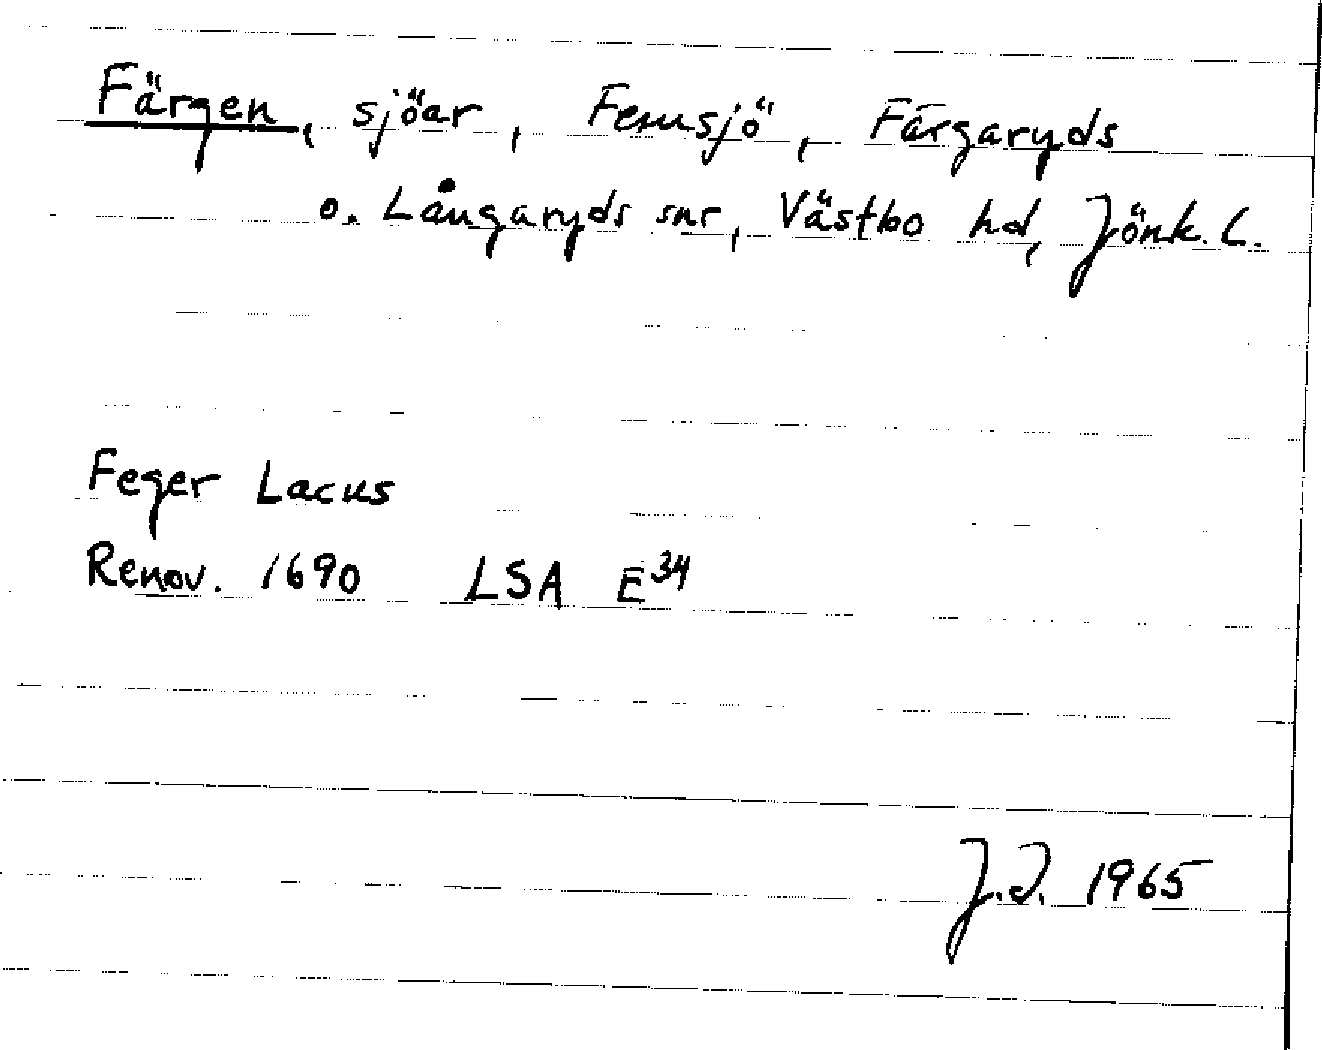 Färgen, sjöar, Femsjö, Färgaryds
o. Långaryds snr, Västbo hd, Jönk. l.
Feger Lacus
Renov. 1690 LSA E³⁴
J.I. 1965